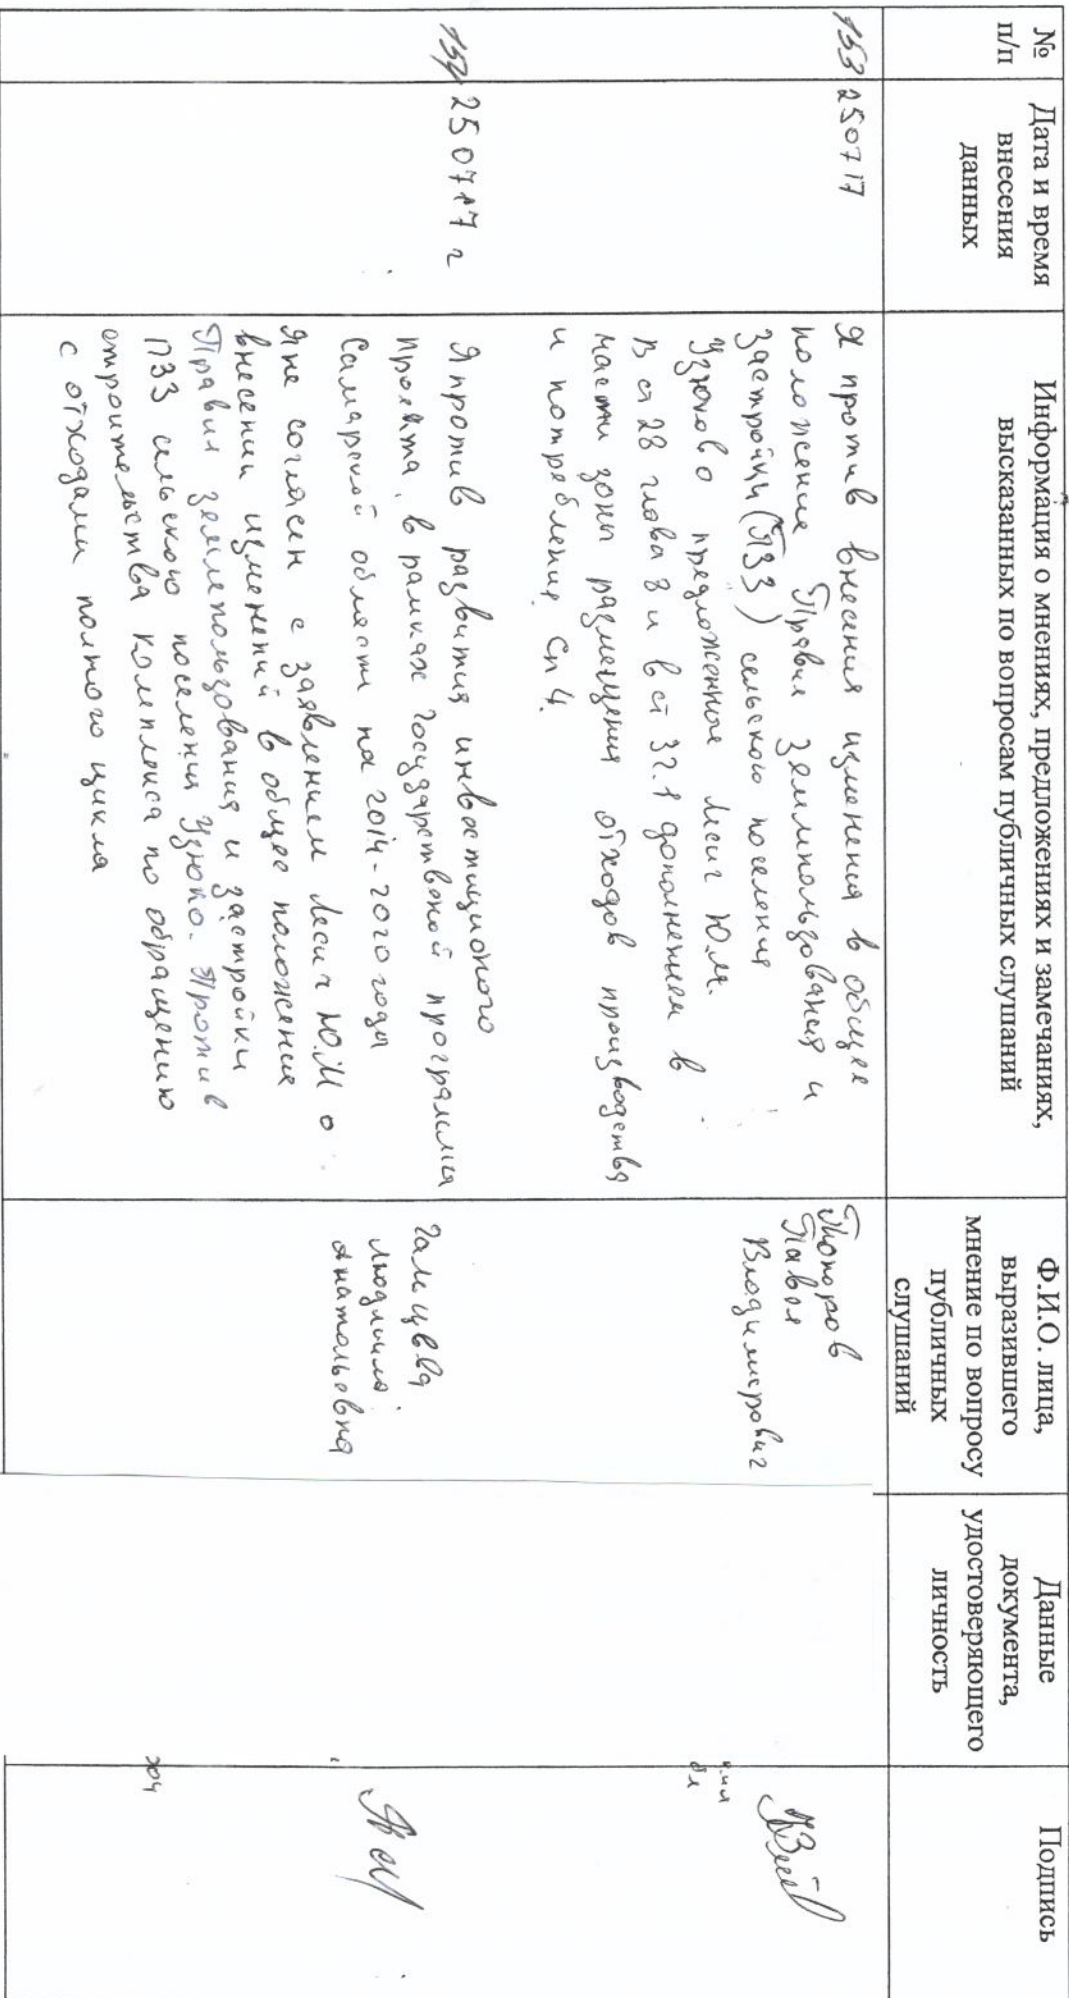 №
п/п
Дата и время
внесения
данных
Информация о мнениях, предложениях и замечаниях,
высказанных по вопросам публичных слушаний
Ф.И.О. лица,
выразившего
мнение по вопросу
публичных
слушаний
Данные
документа,
удостоверяющего
личность
Подпись
153
250717
Я против внесения изменения в общее
положение Правил Землепользования и
Застройки (ПЗЗ) сельского поселения
Узюково предложенное Лесиг Ю.М.
В ст 28 глава 8 и в ст 37.1 дополнением в
части зоны размещения отходов производства
и потребления Сп 4.
Топоров
Павел
Владимирович
250717 г
Я против развития инвестиционого
проекта, в рамках Государственой программы
Самарской области на 2014-2020 года
Я не согласен с заявлением Лесич Ю.М о
внесении изменений в общее положение
Правил землепользования и застройки
ПЗЗ сельского поселения Узюко. Против
строительства комплекса по обращению
с отходами полного цикла
Гальцева
Людмила
Анатольевна